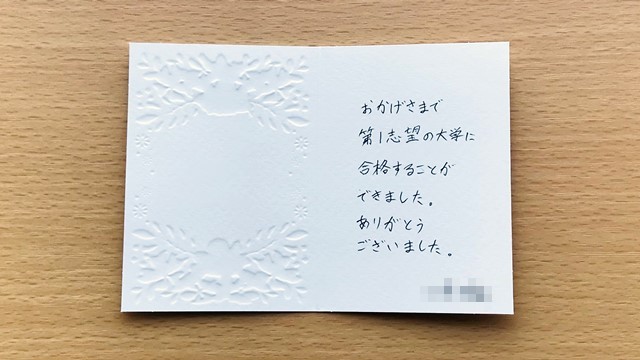 おかげさまで
第1志望の大学に
合格することが
できました。
ありがとう
ございました。